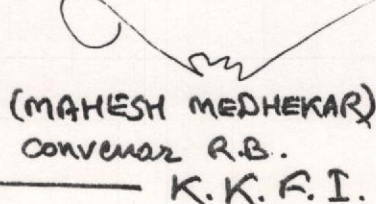 (MAHESH MEDHEKAR)
convenar R.B.
K.K.F.I.